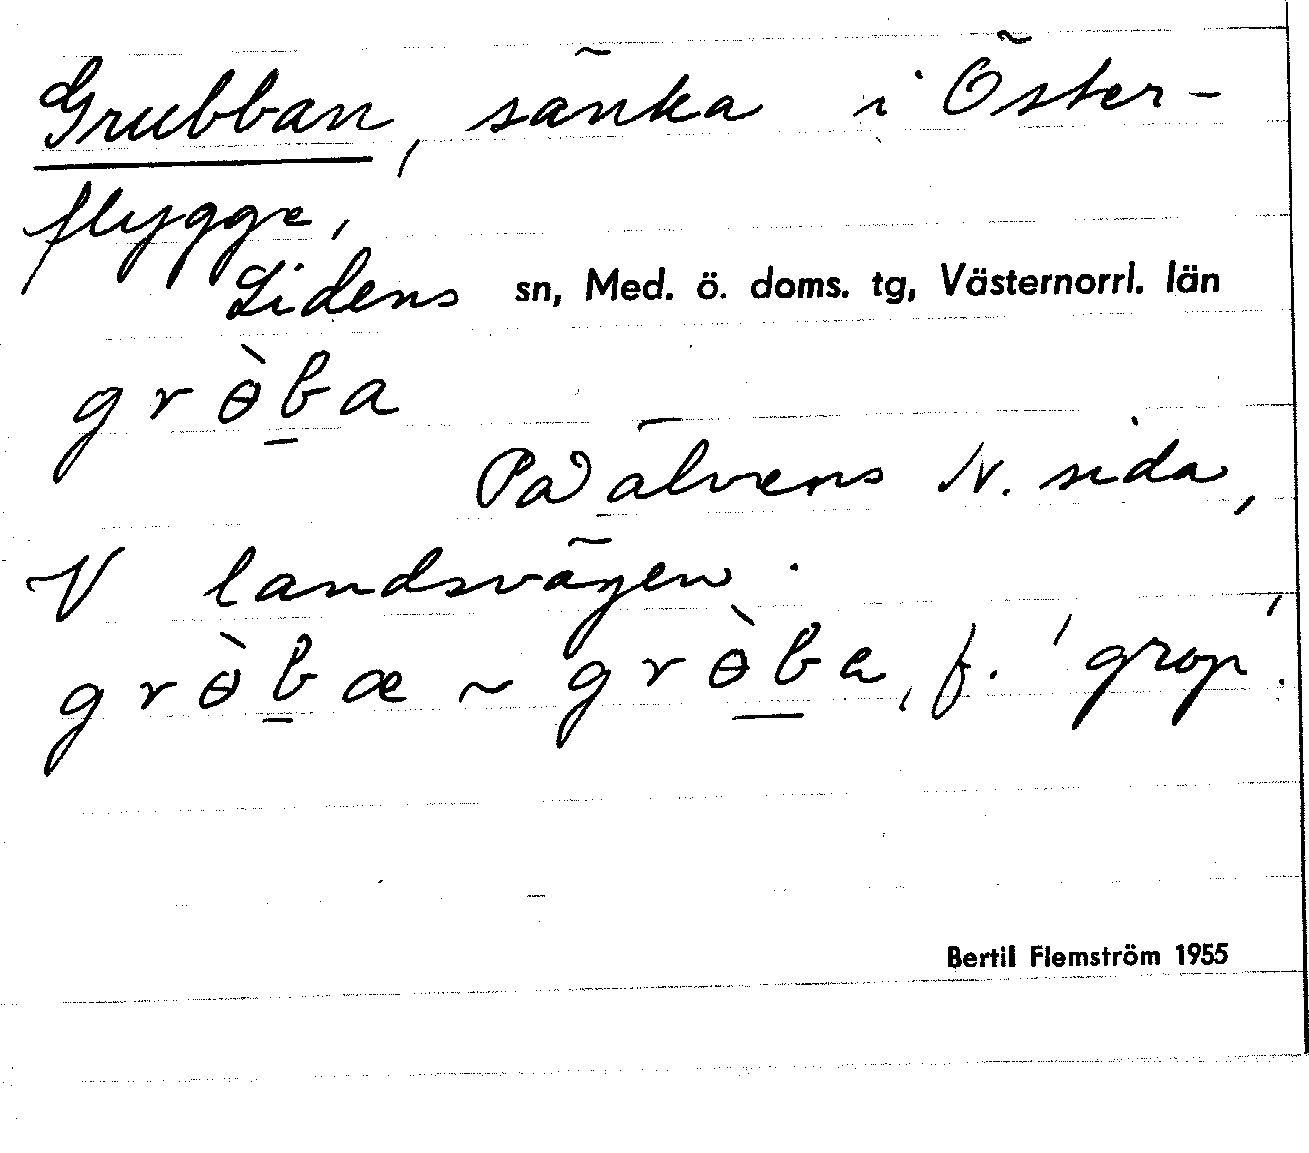 Grubban, sänka i Öster-
flygge,
Lidens sn, Med. ö. doms. tg, Västernorrl. län
grɵ̀b̲a
På älvens N. sida,
V landsvägen.
grɵ̀b̲æ ~ grɵ̀b̲a, f. 'grop'.
Bertil Flemström 1955